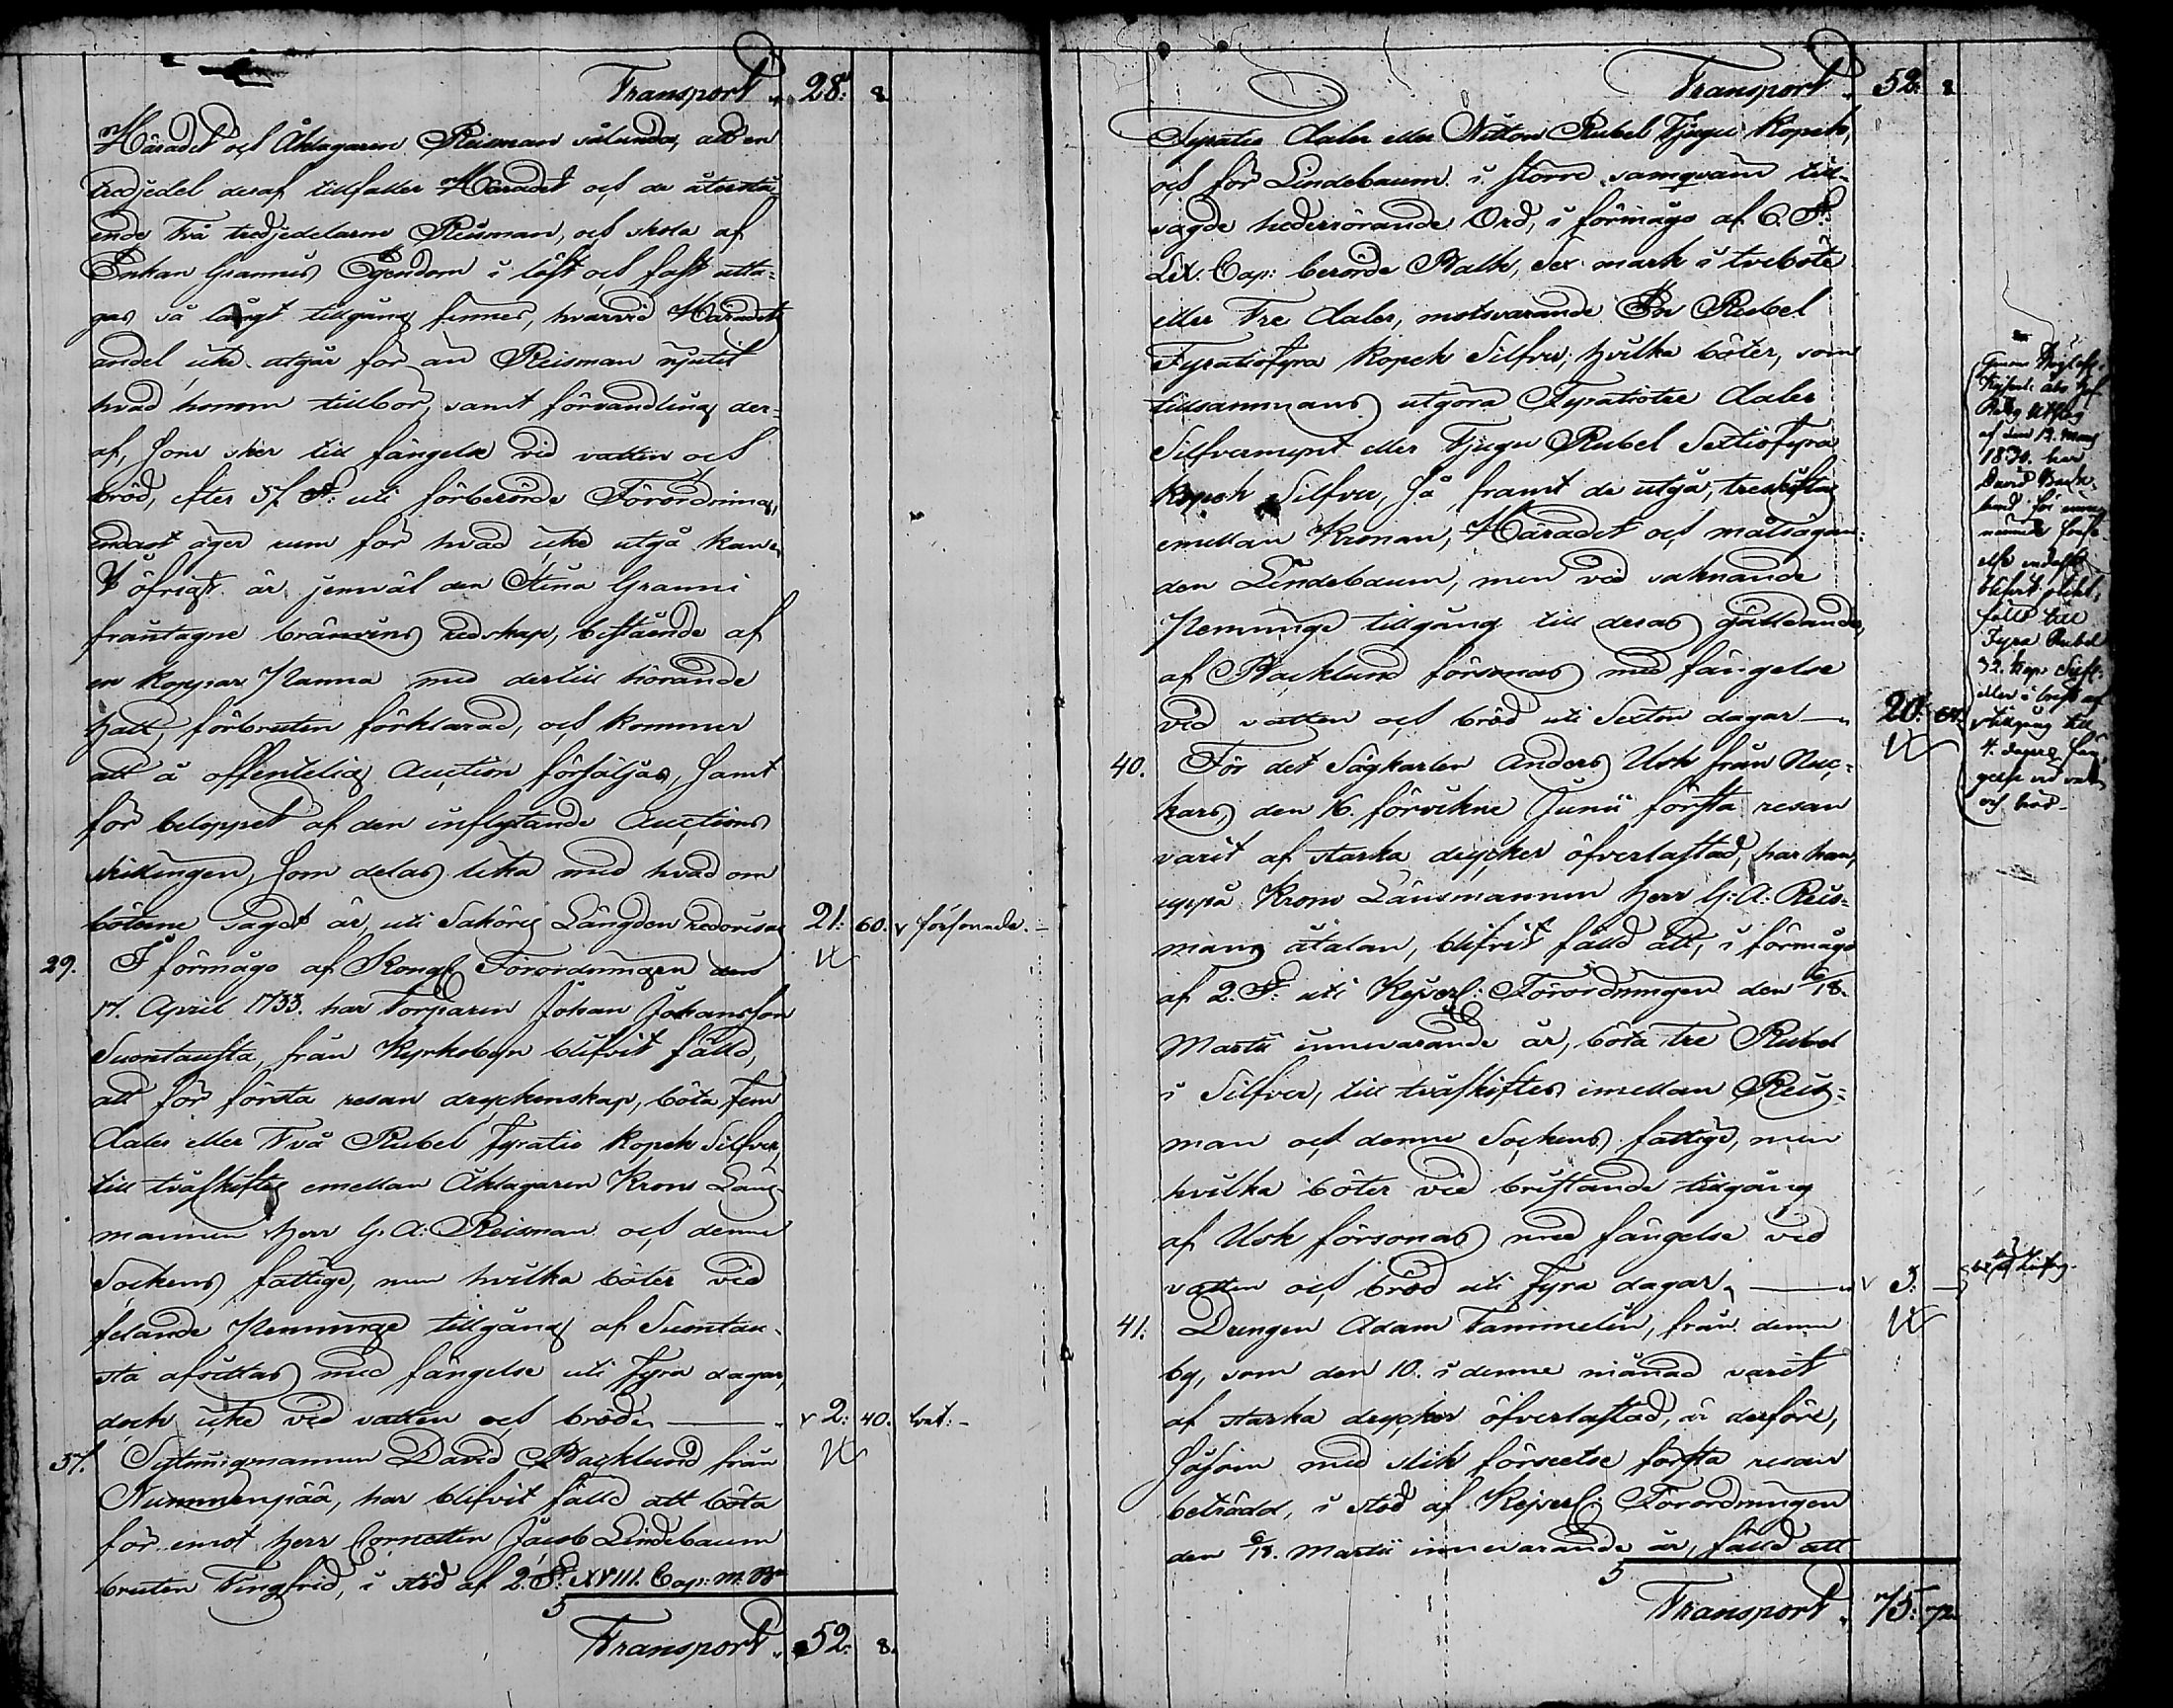 Transport „ 28: 8.
Häradet och Åklagaren Reisman sålunda, att en
tredjedel deraf tillfaller Häradet och de återstå=
ende Två tredjedelarne Reisman, och skola af
Enkan Grannis Egendom i löst och fast utta=
gas så långt tillgång finnes, hvarvid Häradets
andel icke utgår för än Reisman njutit
hvad honom tillbör, samt förvandling der=
af, som sker till fängelse vid vatten och
bröd, efter 5 §. uti förberörde Förordning,
endast äger rum för hvad icke utgå kan.
I öfrigt är jemväl den Stina Granni
fråntagne bränvins redskap, bestående af
en koppar Panna med dertill hörande
hatt, förbruten förklarad, och kommer
att å offentelig Auction försäljas, samt
för beloppet af den inflytande Auctions
skillingen, som delas lika med hvad om
böterne sagdt är, uti Saköres Längden redovisas 21: 60. v försonade.
29. I förmågo af Kongl. Förordningen den
17. April 1733. har Torparen Johan Johansson
Suontausta, från Kyrkobyn blifvit fälld,
att för första resan dryckenskap, böta fem
daler eller Två Rubel fyratio Kopek Silfver,
till tväskiftes emellan Åklagaren Krono Läns=
mannen Herr G. A: Reisman och denne
Sockens fattige, men hvilka böter vid
felande Penninge tillgång af Suontau=
sta afsittas med fängelse uti fyra dagar,
dock icke vid vatten och bröd. — v 2: 40. bet: –
37. Sytningmannen David Backlund från
Nummenpää, har blifvit fälld att böta
för emot Herr Cornetten Jacob Lindebaum
bruten Tingsfrid, i stöd af 2. §. XVIII. Cap: M: B:
Transport „ 52: 8.
Transport „ 52: 8.
Fyratio daler eller Nitton Rubel Tjugu Kopek,
och för Lindebaum i större samqväm till=
sagde hedersrörande Ord, i förmågo af 6. §.
LX. Cap: berörde Balk, Sex mark i tveböte
eller Tre daler, motsvarande En Rubel
Fyratiofyra Kopek Silfver; hvilka böter, som
tillsammans utgöra Fyratiotre daler
Silfvermynt eller Tjugu Rubel Sextiofyra
Kopek Silfver, så framt de utgå, treskiftas
emellan Kronan, Häradet och målsägan=
den Lindebaum, men vid saknande
Penninge tillgång till deras gäldande,
af Backlund försonas med fängelse
vid vatten och bröd uti Sexton dagar — „ 20: 64.
Tyra Rubel
32. Kop: Silf:
eller i brist af
tillgång till
4. dagars fän=
gelse vid vatten
och bröd –
40. För det Sågkarlen Anders Usk från Nac=
kars, den 16. förvikne Junii första resan
varit af starka drycker öfverlastad, har han,
uppå Krono Länsmannen Herr G: A: Reis=
mans åtalan, blifvit fälld att, i förmågo
af 2. §: uti Kejserl: Förordningen den 6/18.
Martii innevarande år, böta tre Rubel
i Silfver, till tväskiftes emellan Reis=
man och denne Sockens fattige, men
hvilka böter vid bristande tillgång
af Usk försonas med fängelse vid
vatten och bröd uti fyra dagar. — „ v 3: —
41. Drengen Adam Tammelin, från denne
by, som den 10. i denne månad varit
af starka drycker öfverlastad, är derföre,
såsom med slik förseelse första resan
beträdd, i stöd af Kejserl: Förordningen
den 6/18. Martii innevarande år, fälld att
Transport „ 75: 72.